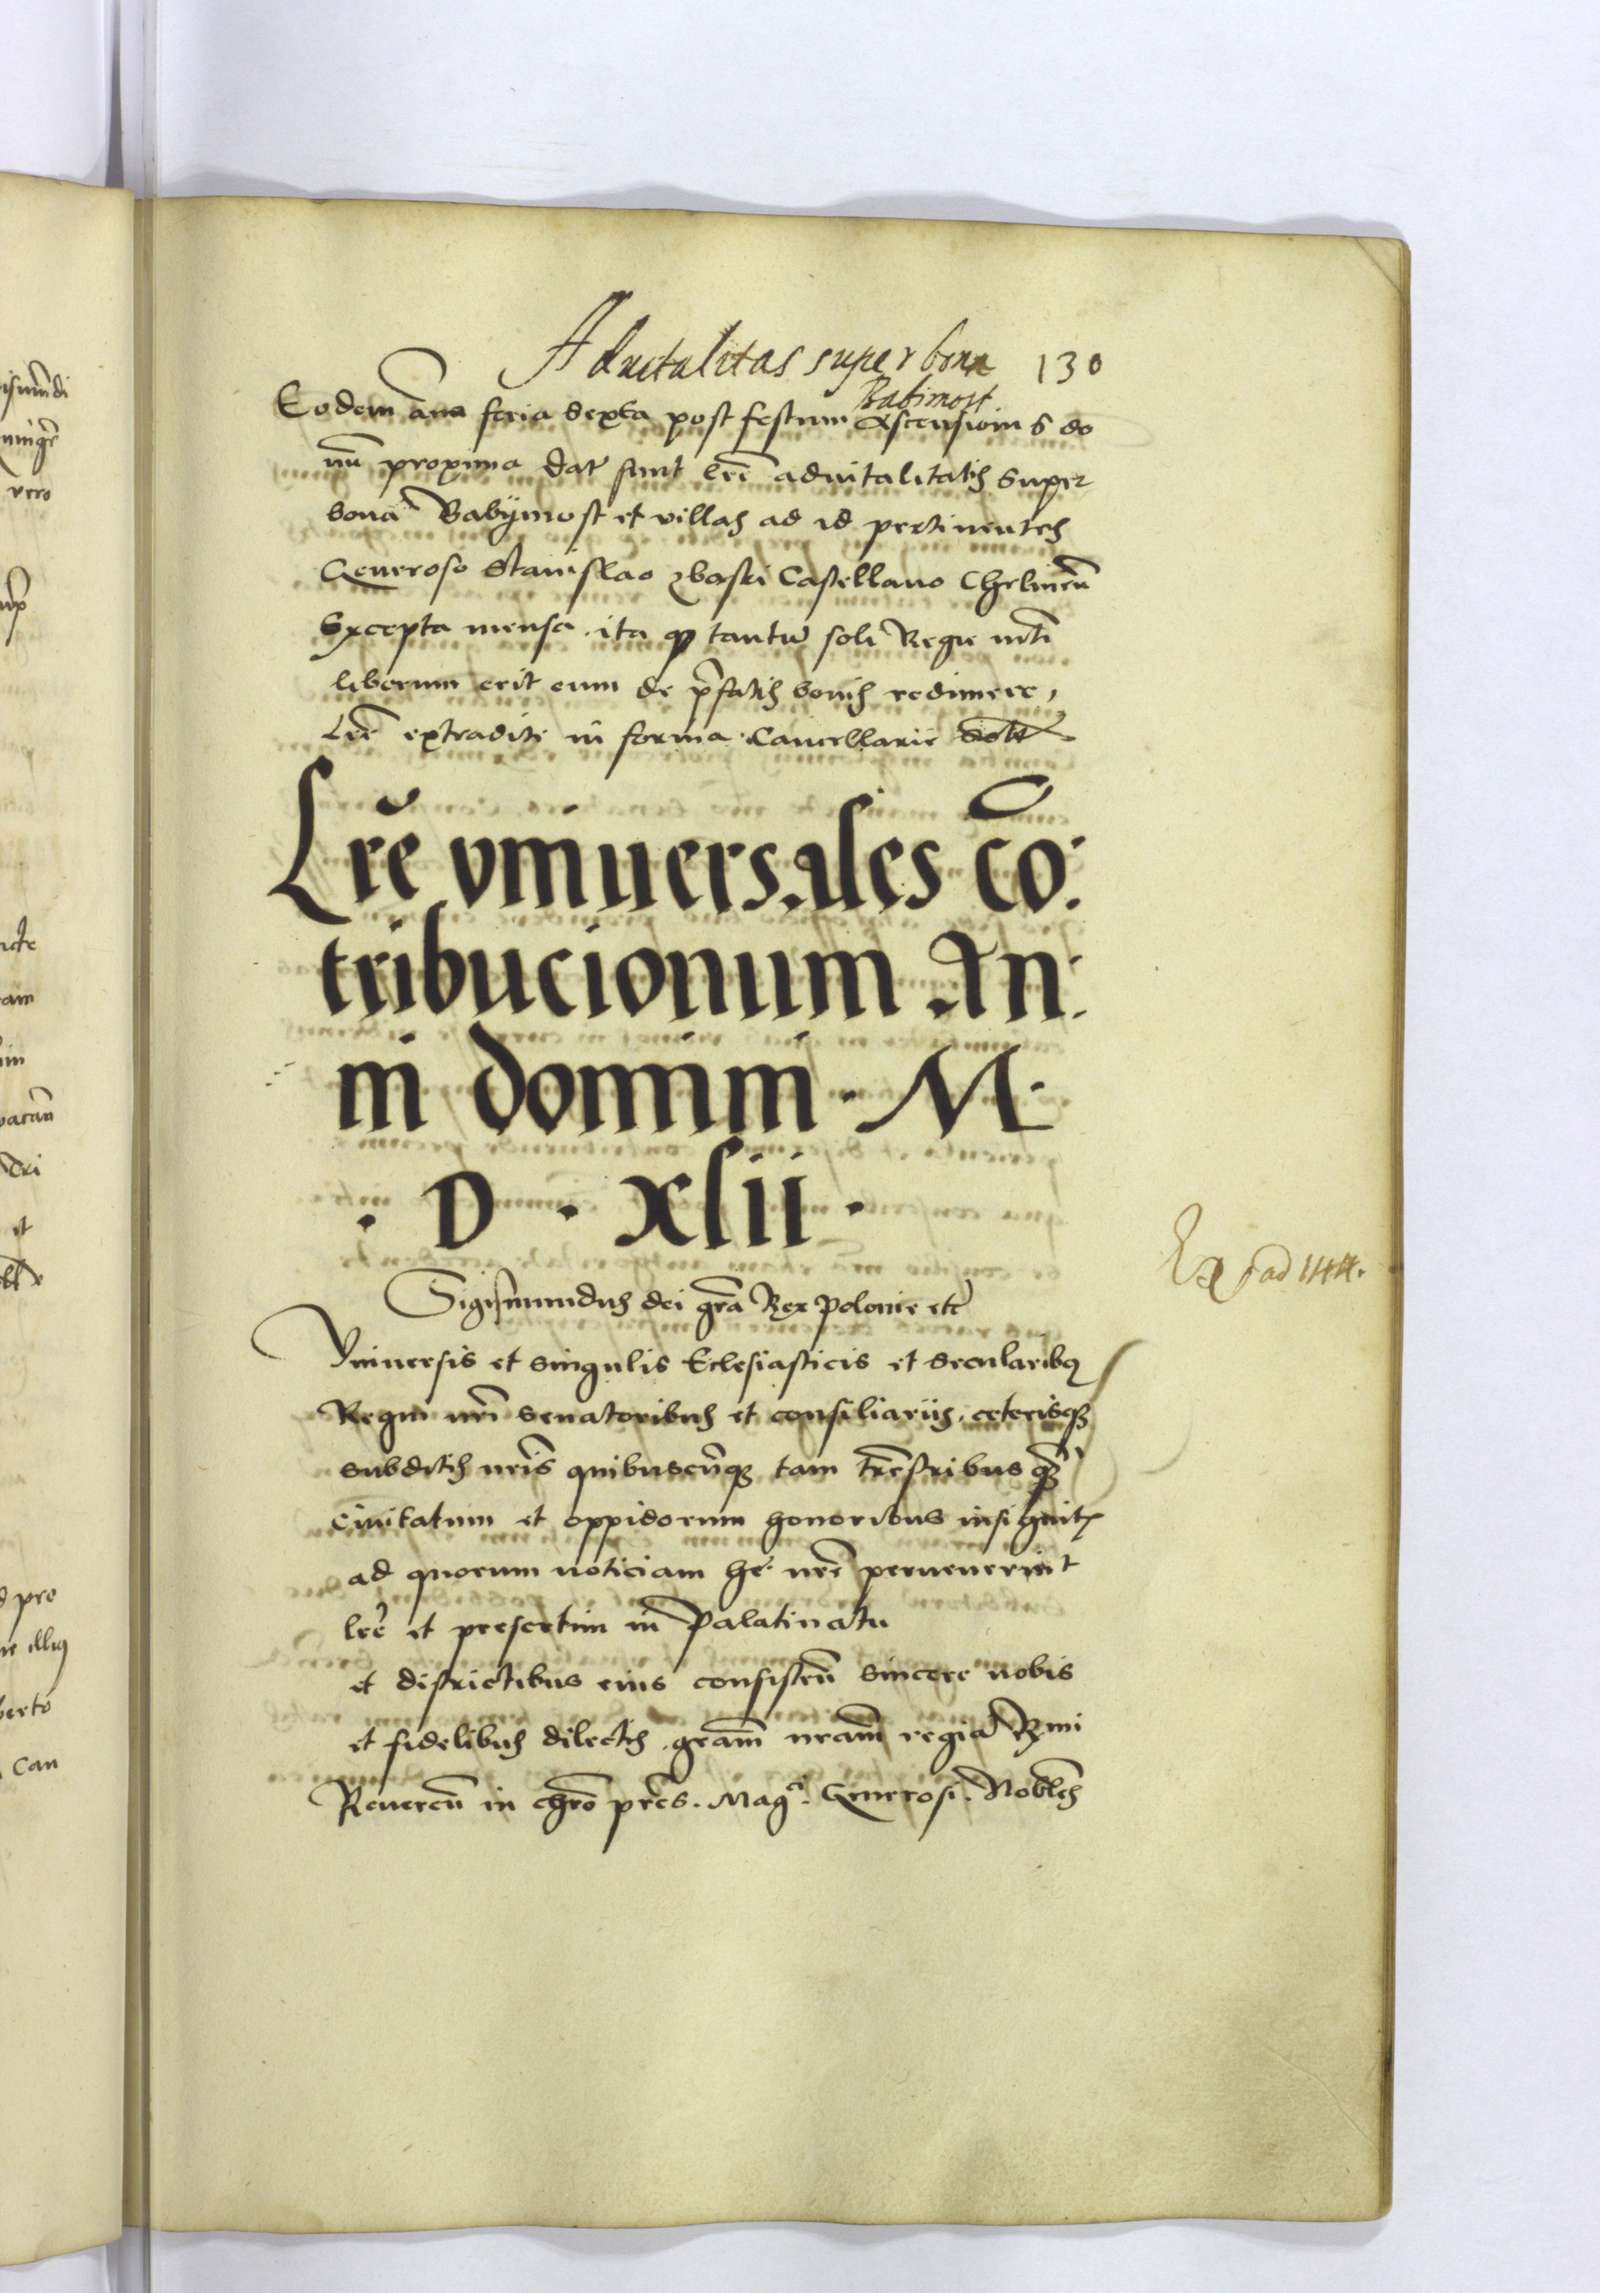 Aduitalitas super bona 130
Babimost
Eodem anno feria sexta post festum Ascensionis do
nu proxima dat sunt lre aduitalitatis super
bona Babymost et villas ad id pertinentes
Generoso Stanislao Zbaski Castellano Chelmeñ
Excepta mensa ita q tantu soli Regie mti
liberum erit eum de pfatis bonis redimere,
Lre extradite in forma Cancellarie
Lrē vniuersales cō:
tribucionum An:
ni domini · M ·
· D · xlii ·
Sigismundus dei gra Rex Polonie etc
Vniuersis et singulis Eclesiasticis et secularibus
Regni nri senatoribus et consiliariis, ceterisq
subditis nris quibuscunq tam trestribus q
Ciuitatum et oppidorum honoribus insignit
ad quorum noticiam he nre peruenerint
lre et presertim in Palatinatu
et districtibus eius consisteñ sincere nobis
et fidelibus dilectis gram nram regia Rmi
Reuereñ in chro pres. Mag. Generosi. Nobles